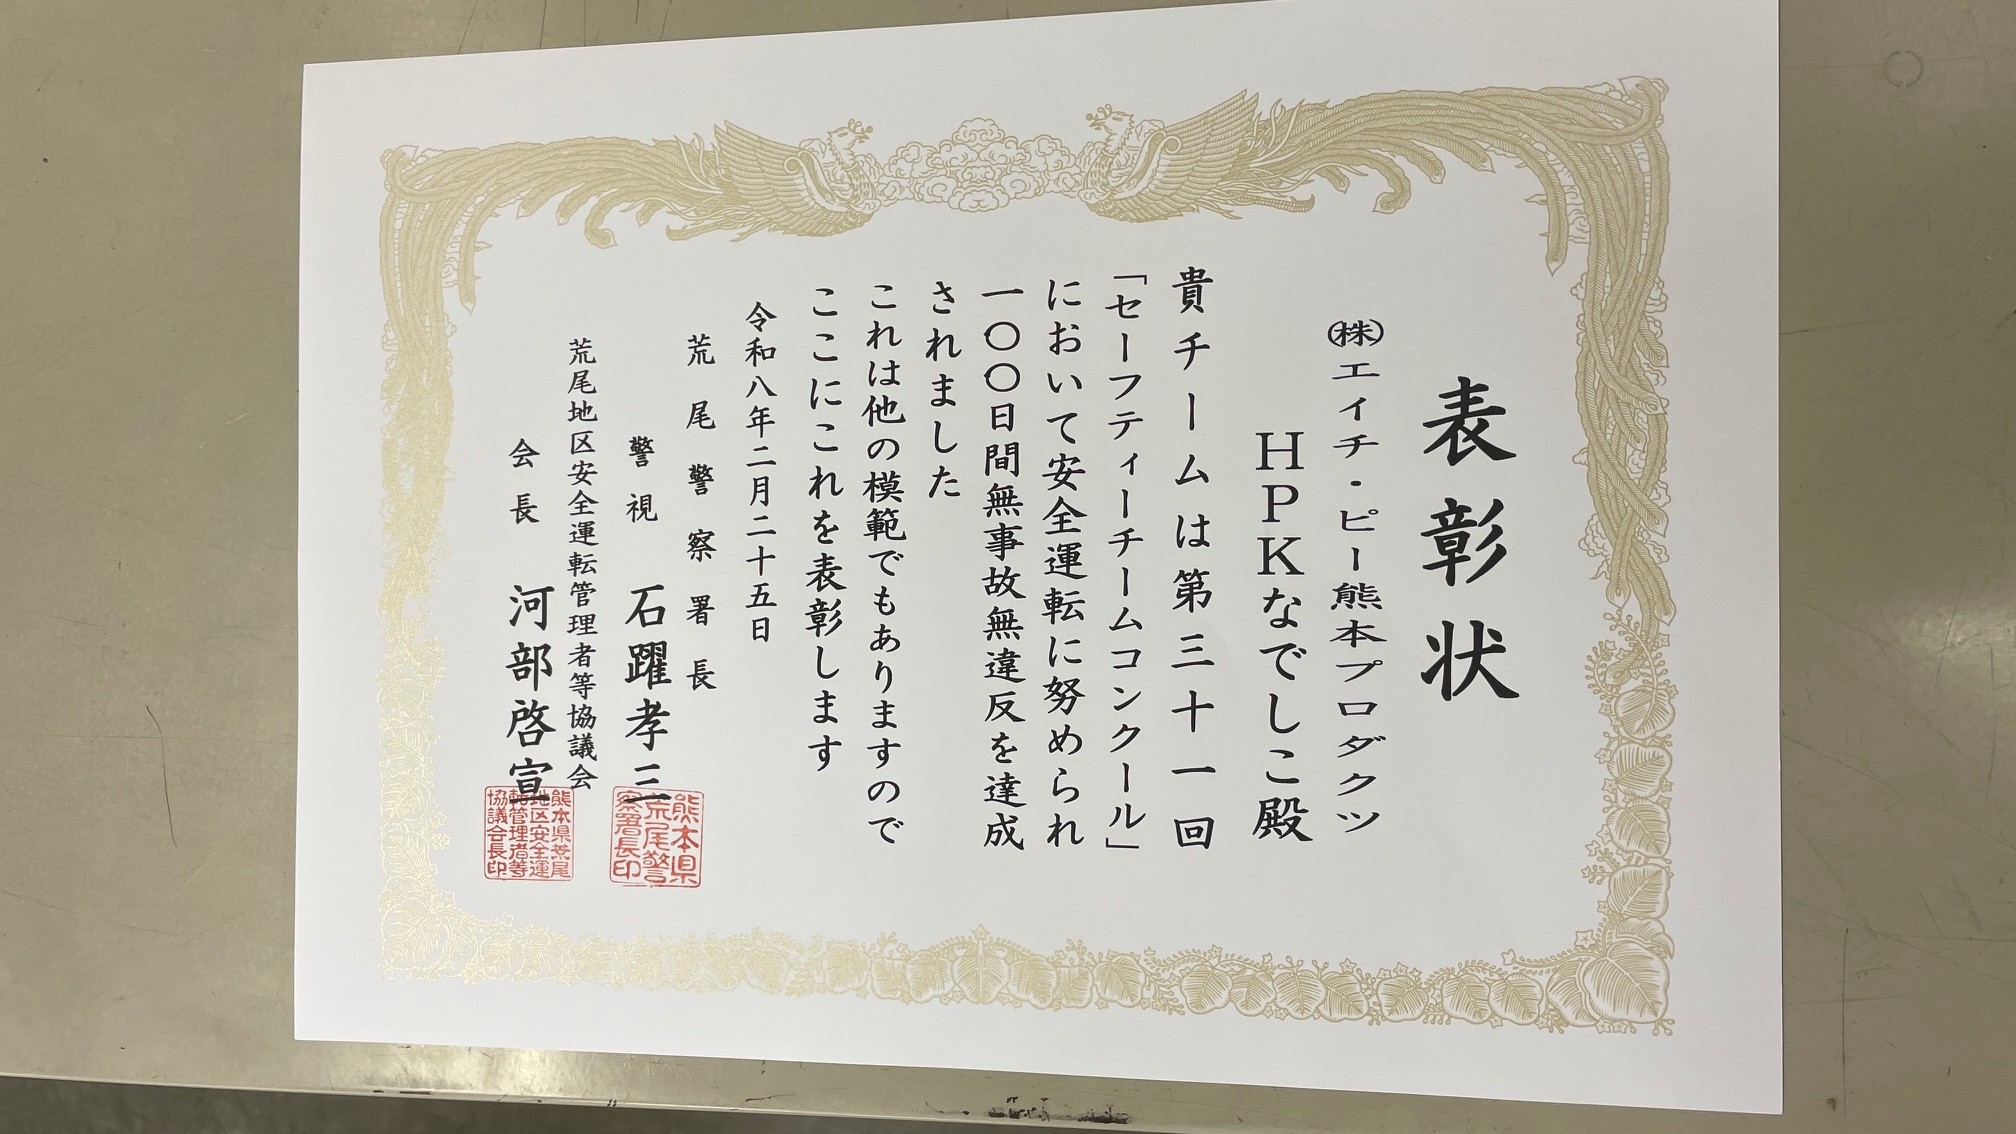 表彰状
㈱エイチ・ピー熊本プロダクツ
HPKなでしこ殿
貴チームは第三十一回
「セーフティーチームコンクール」
において安全運転に努められ
一〇〇日間無事故無違反を達成
されました
これは他の模範でもありますので
ここにこれを表彰します
令和八年二月二十五日
荒尾警察署長
警視 石躍孝三
荒尾地区安全運転管理者等協議会
会長 河部啓宣
熊本県
荒尾警
察署長印
熊本県荒尾
地区安全運
転管理者等
協議会長印